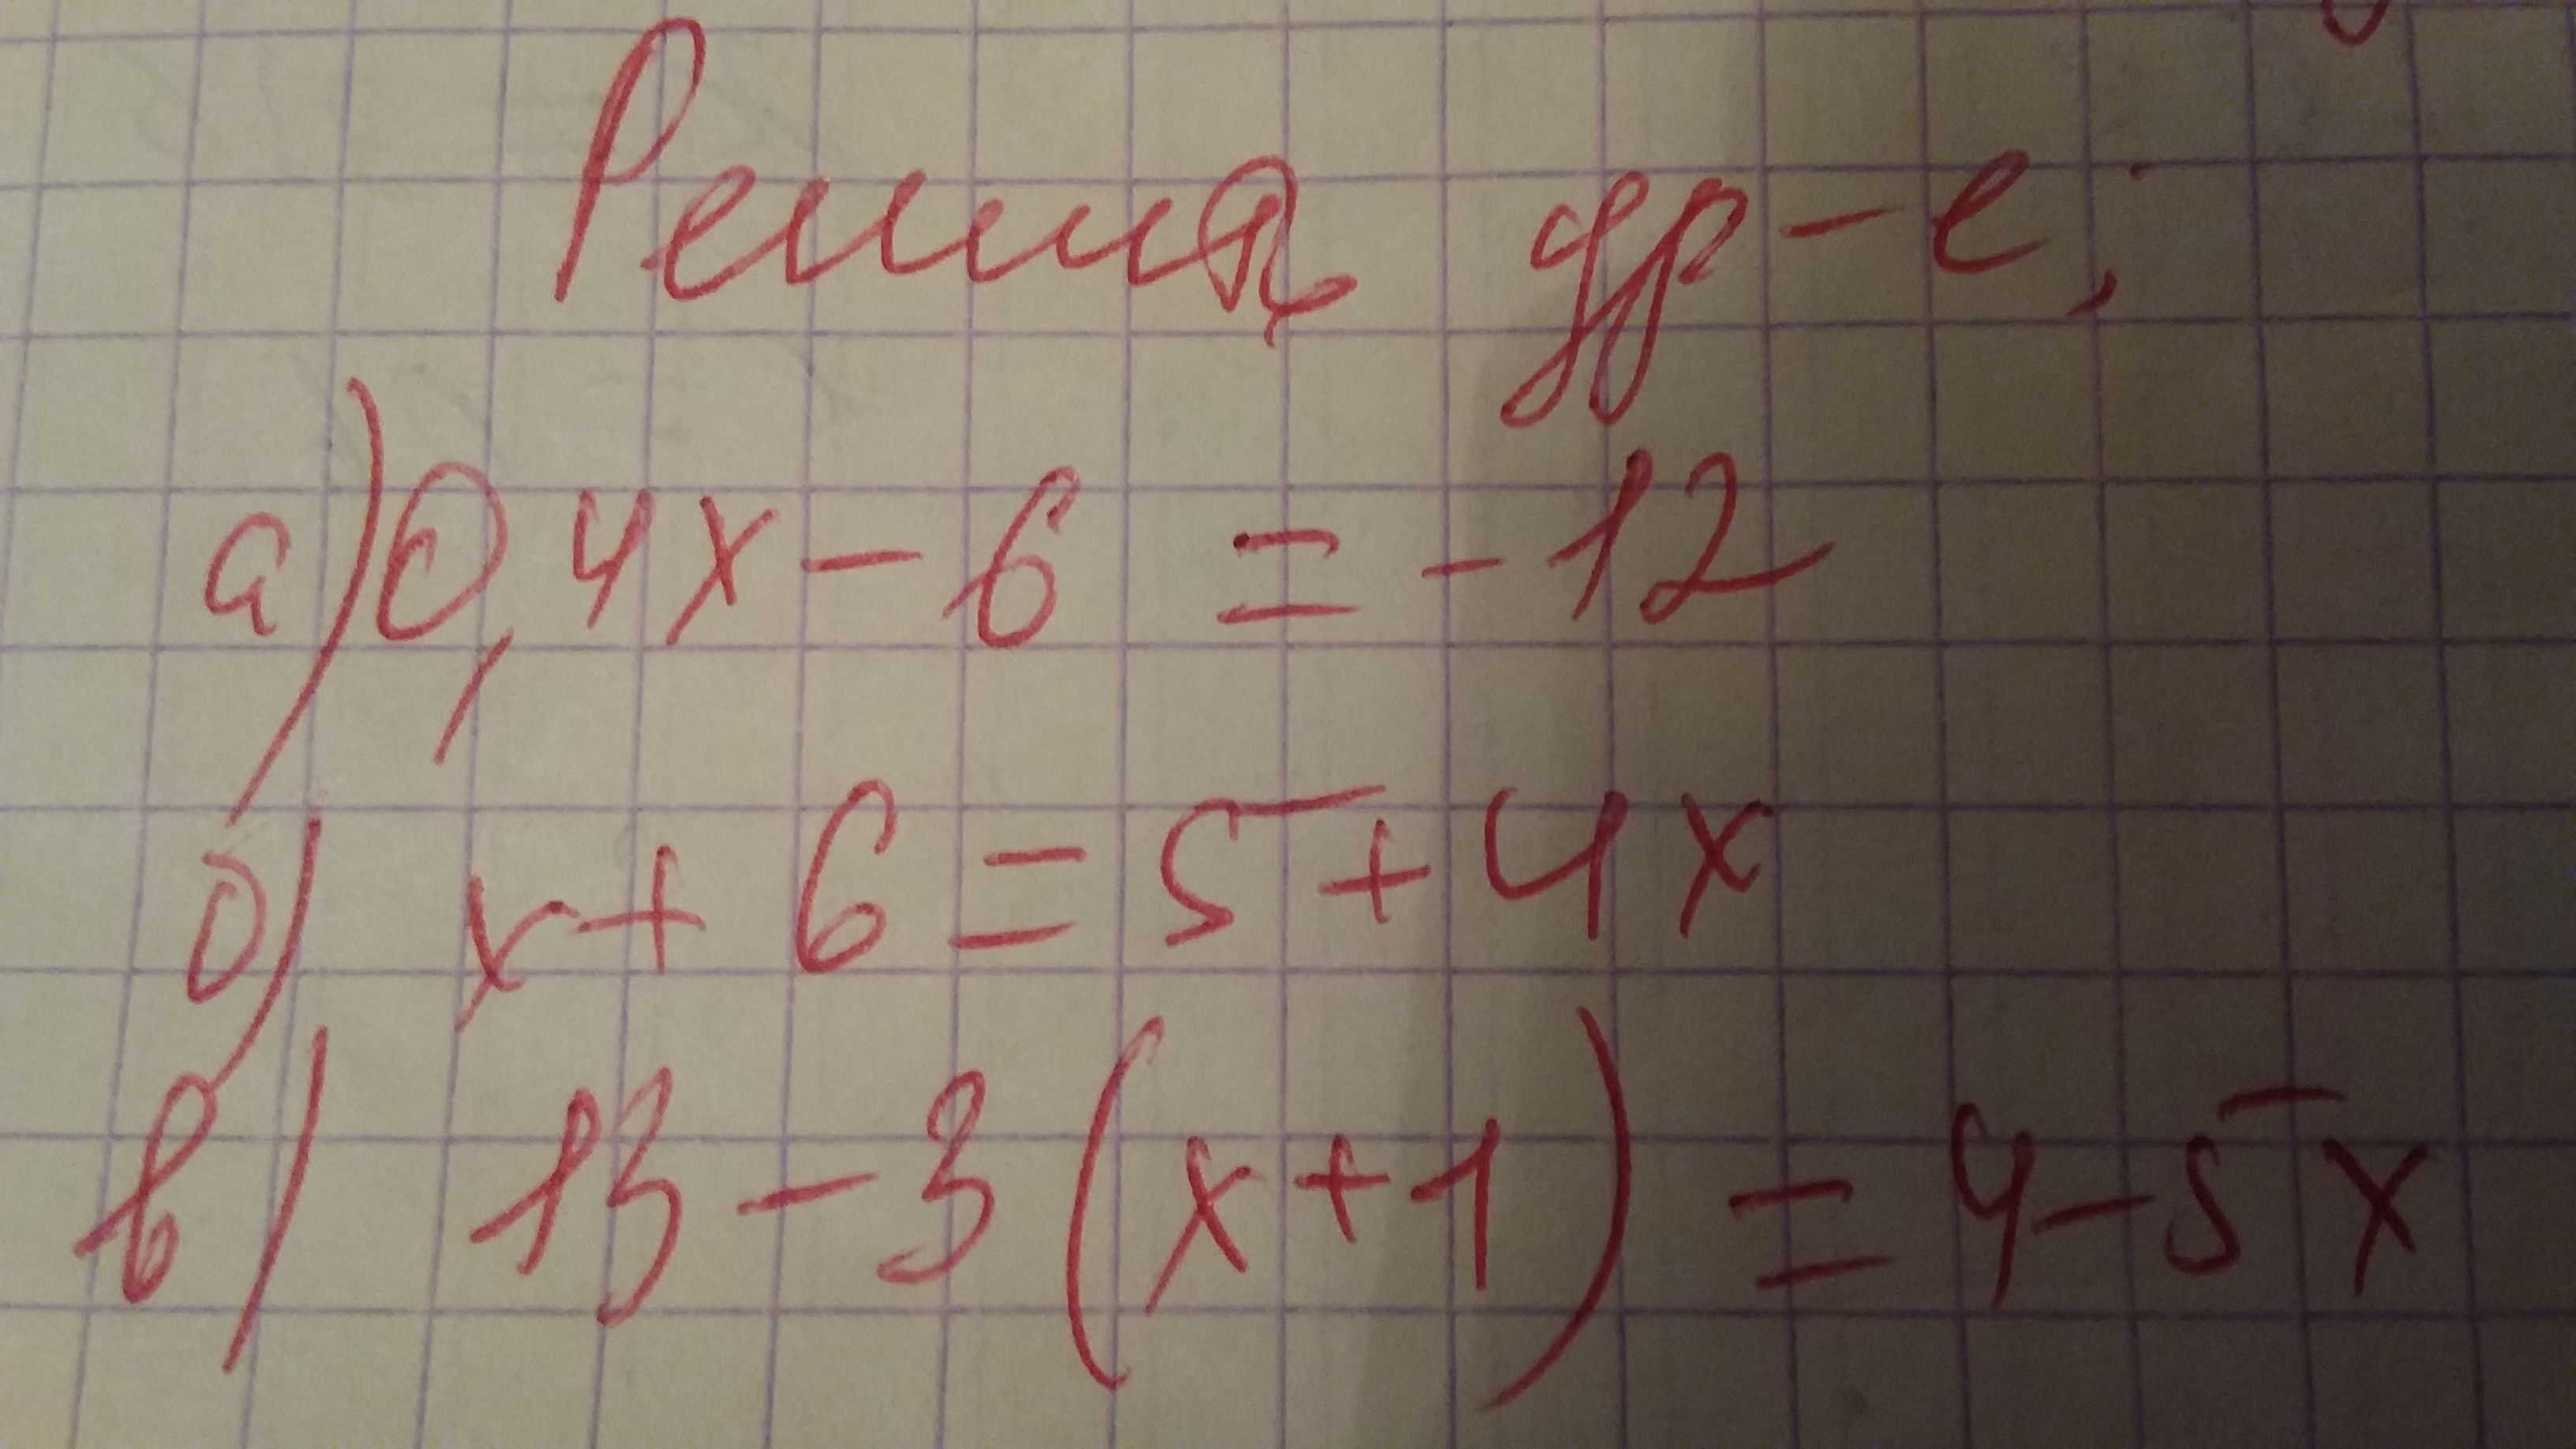 Решите ур-е:
а) 0,4x - 6 = -12
б) x + 6 = 5 + 4x
в) 13 - 3(x + 1) = 4 - 5x